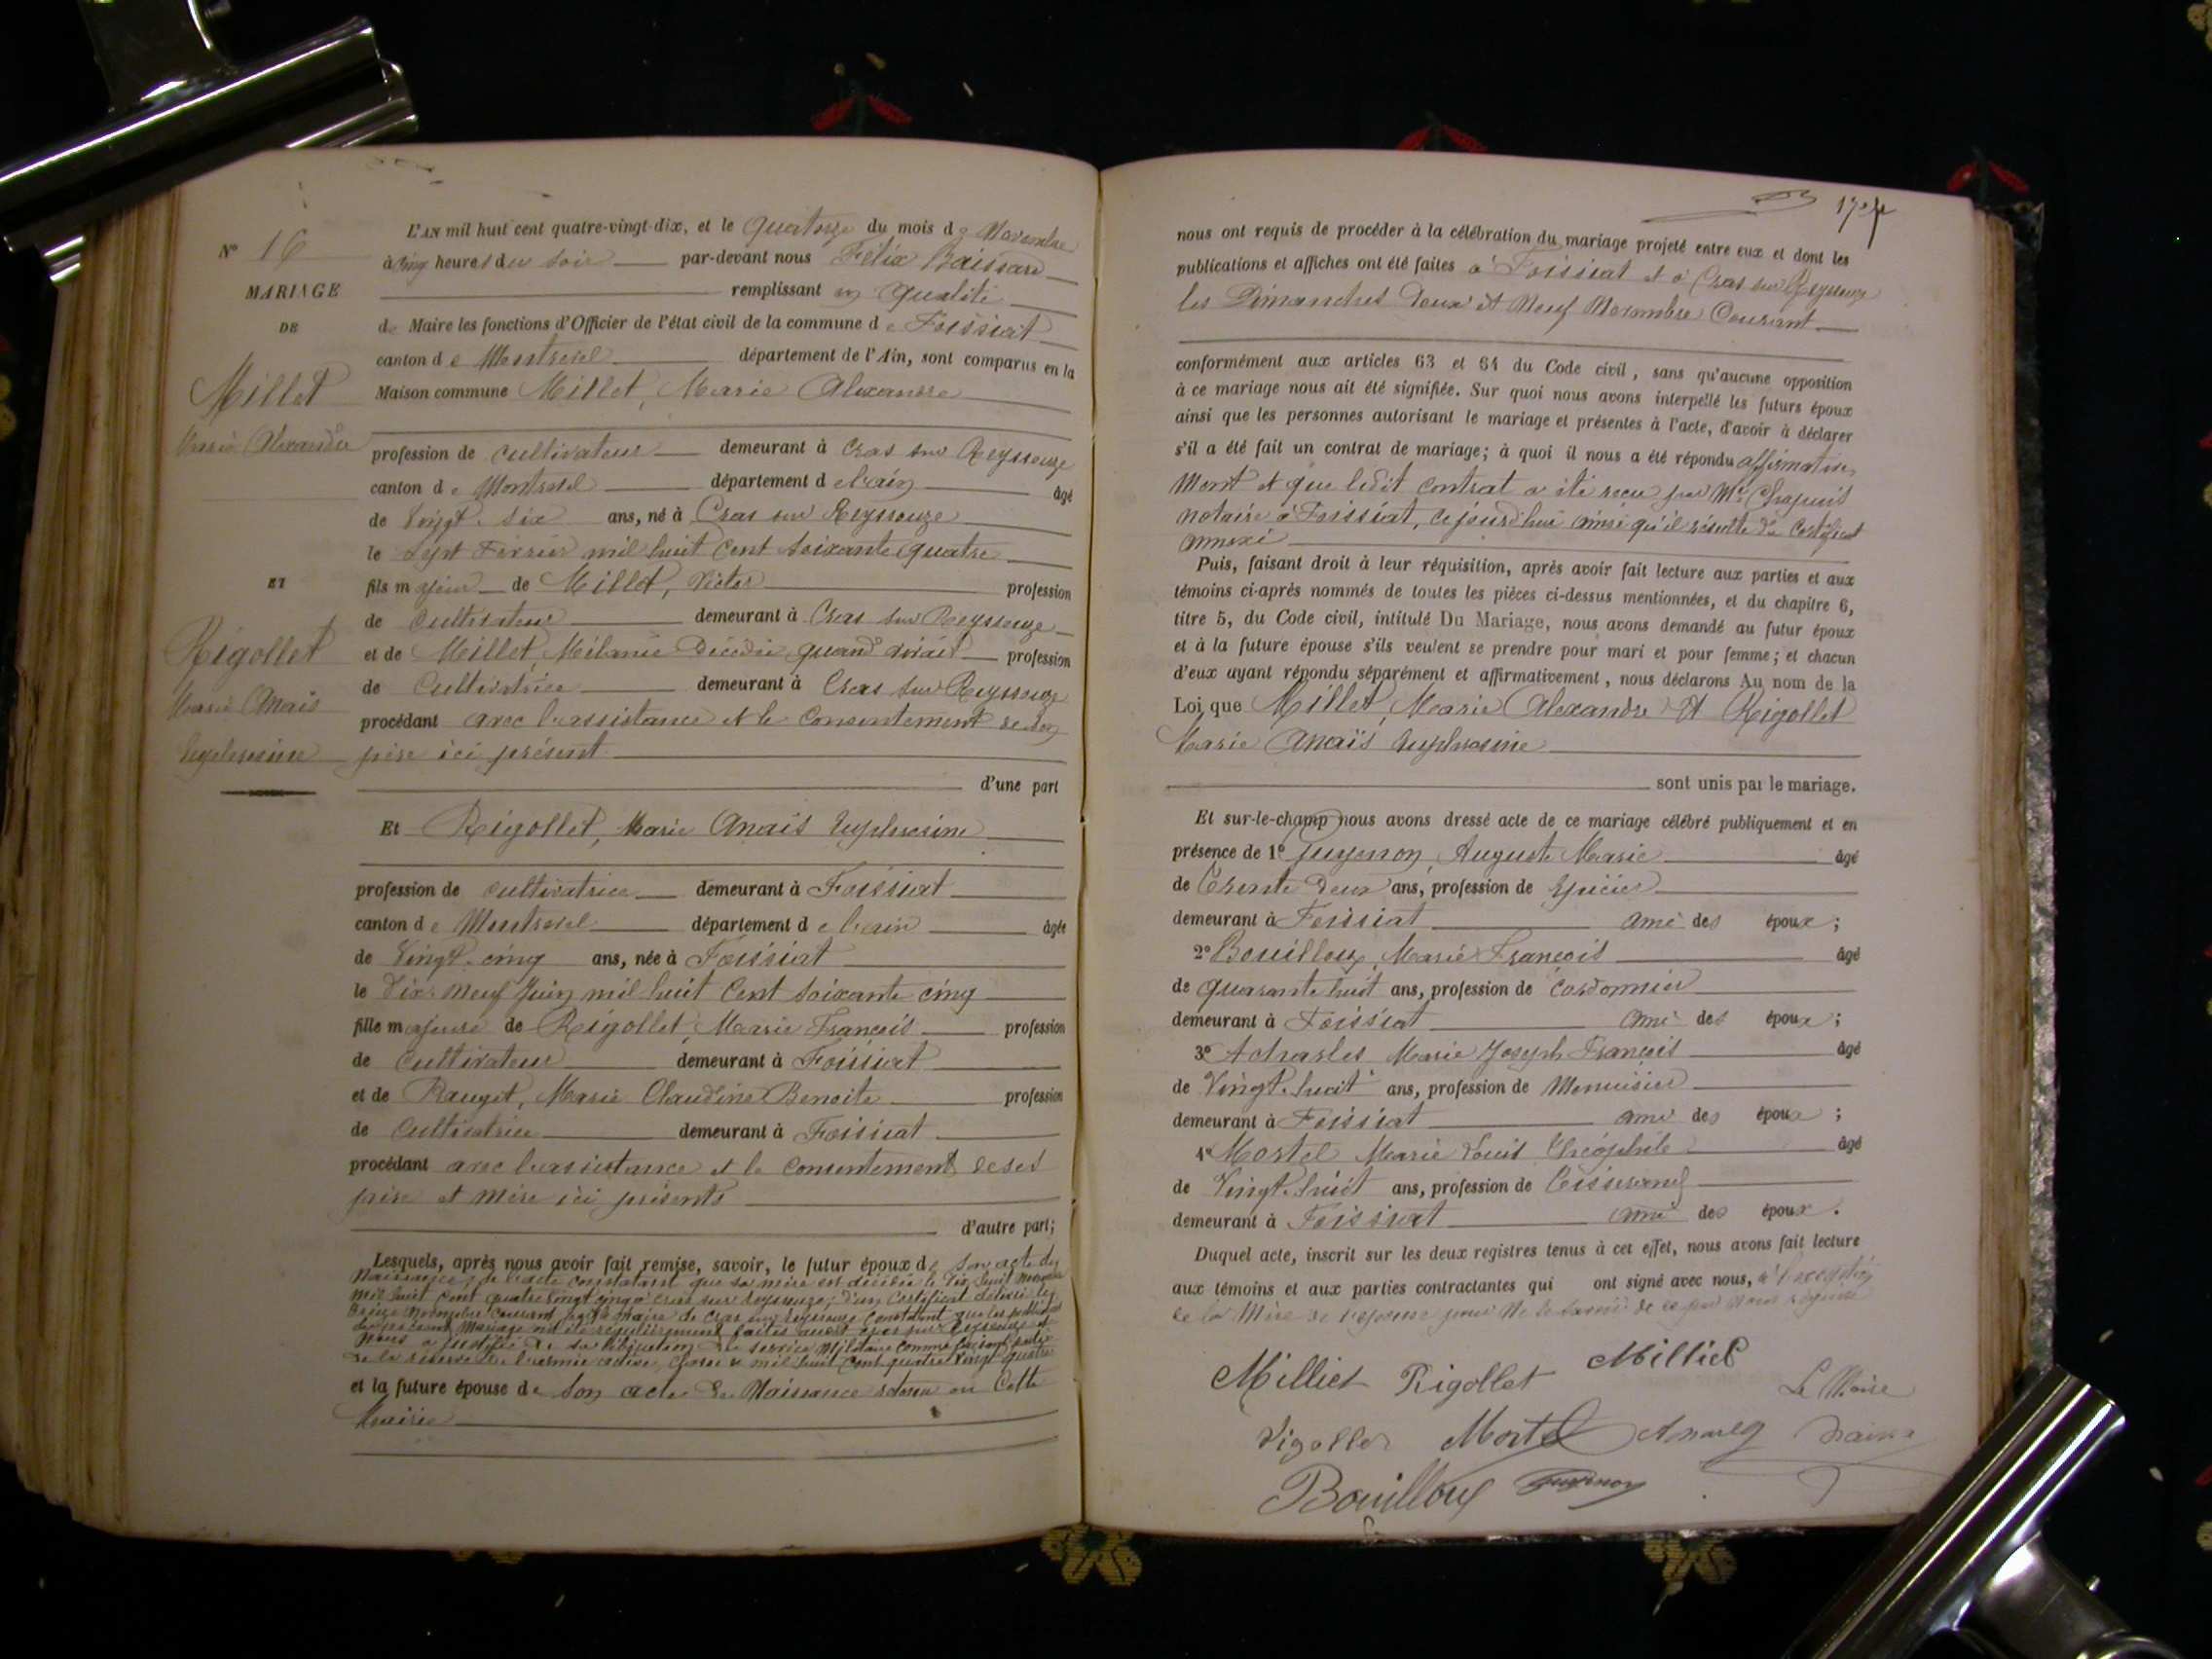 N° 16
MARIAGE
DE
Millet
Marie Alexandre
ET
Rigollet
Marie Anais
Euphrosine
L'AN mil huit cent quatre-vingt-dix, et le quatorze du mois de Novembre
à cinq heures du soir par-devant nous Félix
remplissant en qualité
de Maire les fonctions d'Officier de l'état civil de la commune de Foissiat
canton de Montrevel département de l'Ain, sont comparus en la
Maison commune Millet, Marie Alexandre
profession de cultivateur demeurant à Cras sur Reyssouze
canton de Montrevel département de l'ain âgé
de vingt-six ans, né à Cras sur Reyssouze
le sept Février mil huit cent soixante quatre
fils majeur de Millet, Victor profession
de Cultivateur demeurant à Cras sur Reyssouze
et de Millet, Mélanie Décédée quand vivait profession
de Cultivatrice demeurant à Cras sur Reyssouze
procédant avec l'assistance et le consentement de son
père ici présent
d'une part
Et Rigollet, Marie Anais Euphrosine
profession de cultivatrice demeurant à Foissiat
canton de Montrevel département de l'ain âgée
de Vingt-cinq ans, née à Foissiat
le Dix-neuf Juin mil huit Cent soixante cinq
fille majeure de Rigollet, Marie François profession
de Cultivateur demeurant à Foissiat
et de Rauget, Marie Claudine Benoite profession
de Cultivatrice demeurant à Foissiat
procédant avec l'assistance et le consentement de ses
père et mère ici présents
d'autre part;
Lesquels, après nous avoir fait remise, savoir, le futur époux de son acte de
Naissance, de l'acte constatant que sa mère est décédée le Dix huit
mil huit cent quatre vingt cinq à Cras sur Reyssouze; d'un Certificat délivré le
Novembre courant par le Maire de Cras sur Reyssouze Constatant que les publications
du présent Mariage ont été régulièrement faites audit Cras sur Reyssouze et
Nous a justifié de sa libération du service Militaire comme faisant partie
de la réserve de l'armée active, classe de mil huit cent quatre vingt quatre
et la future épouse de son acte de Naissance retenu en cette
Mairie
nous ont requis de procéder à la célébration du mariage projeté entre eux et dont les
publications et affiches ont été faites à Foissiat et à Cras sur Reyssouze
les Dimanches Deux et Neuf Novembre Courant
conformément aux articles 63 et 64 du Code civil, sans qu'aucune opposition
à ce mariage nous ait été signifiée. Sur quoi nous avons interpellé les futurs époux
ainsi que les personnes autorisant le mariage et présentes à l'acte, d'avoir à déclarer
s'il a été fait un contrat de mariage; à quoi il nous a été répondu affirmative
ment et que ledit contrat a été reçu par Me Chapuis
notaire à Foissiat, ce jourd'hui ainsi qu'il résulte du Certificat
annexé
Puis, faisant droit à leur réquisition, après avoir fait lecture aux parties et aux
témoins ci-après nommés de toutes les pièces ci-dessus mentionnées, et du chapitre 6,
titre 5, du Code civil, intitulé Du Mariage, nous avons demandé au futur époux
et à la future épouse s'ils veulent se prendre pour mari et pour femme; et chacun
d'eux ayant répondu séparément et affirmativement, nous déclarons Au nom de la
Loi que Millet, Marie Alexandre Et Rigollet
Marie Anaïs Euphrosine
sont unis par le mariage.
Et sur-le-champ nous avons dressé acte de ce mariage célébré publiquement et en
présence de 1° Guyenon, Auguste Marie âgé
de Trente Deux ans, profession de Epicier
demeurant à Foissiat ami des époux;
2° Bouilloux, Marie François âgé
de quarante huit ans, profession de Cordonnier
demeurant à Foissiat ami des époux;
3° Acharles Marie Joseph François âgé
de Vingt-huit ans, profession de Menuisier
demeurant à Foissiat ami des époux;
4° Mortel Marie Louis Théophile âgé
de Vingt-huit ans, profession de Tisserand
demeurant à Foissiat ami des époux.
Duquel acte, inscrit sur les deux registres tenus à cet effet, nous avons fait lecture
aux témoins et aux parties contractantes qui ont signé avec nous, à l'exception
de la Mère de l'épouse pour ne le savoir de ce par nous requise
Milliet Rigollet Milliet
Le Maire
Rigollet Mortel
Bouilloux Guyenon